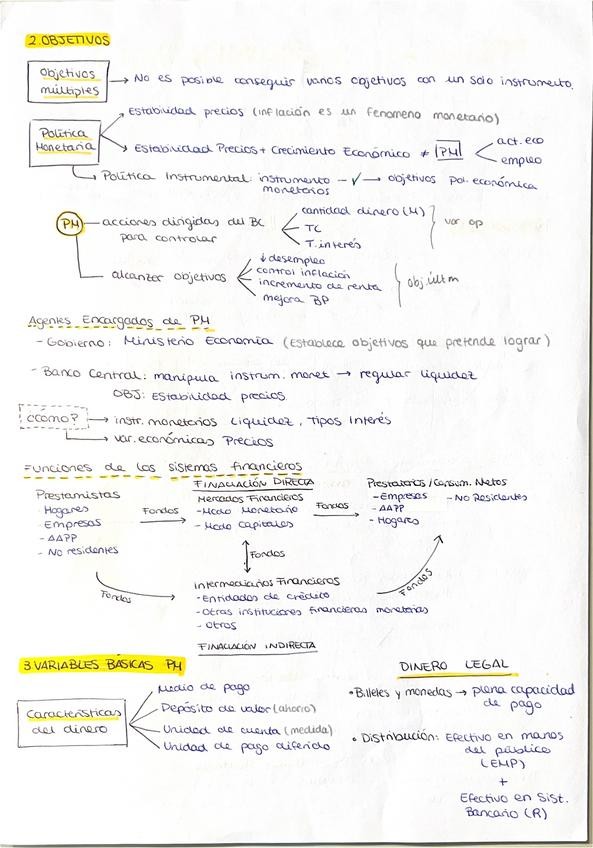 2. OBJETIVOS
Objetivos
múltiples
→ No es posible conseguir varios objetivos con un solo instrumento.
Política
Monetaria
Estabilidad precios (inflación es un fenomeno monetario)
Estabilidad Precios + Crecimiento Económico ≠ PM
act. eco
empleo
Política Instrumental: instrumento - ✓ → objetivos pol. económica
monetarios
PM
acciones dirigidas del BC
para controlar
cantidad dinero (M)
TC
T. interés
var. op
alcanzar objetivos
↓ desempleo
control inflación
incremento de renta
mejora BP
obj. últm
Agentes Encargados de PM
- Gobierno: Ministerio Economía (Establece objetivos que pretende lograr)
- Banco Central: manipula instrum. monet → regular liquidez
OBJ: Estabilidad precios
¿cómo?
→ instr. monetarios Liquidez, Tipos Interés
→ var. económicas Precios
Funciones de los sistemas financieros
FINACIACIÓN DIRECTA
Prestamistas
- Hogares
- Empresas
- AAPP
- No residentes
Fondos
Mercados Financieros
- Mcdo Monetario
- Mcdo Capitales
Fondos
Prestatarios / Consum. Netos
- Empresas - No Residentes
- AAPP
- Hogares
Fondos
Fondos
Fondos
Intermediarios Financieros
- Entidades de crédito
- Otras instituciones financieras monetarias
- Otros
FINACIACION INDIRECTA
3 VARIABLES BÁSICAS PM
Características
del dinero
Medio de pago
Depósito de valor (ahorro)
Unidad de cuenta (medida)
Unidad de pago diferido
DINERO LEGAL
• Billetes y monedas → plena capacidad
de pago
• Distribución: Efectivo en manos
del público
(EMP)
+
Efectivo en Sist.
Bancario (R)